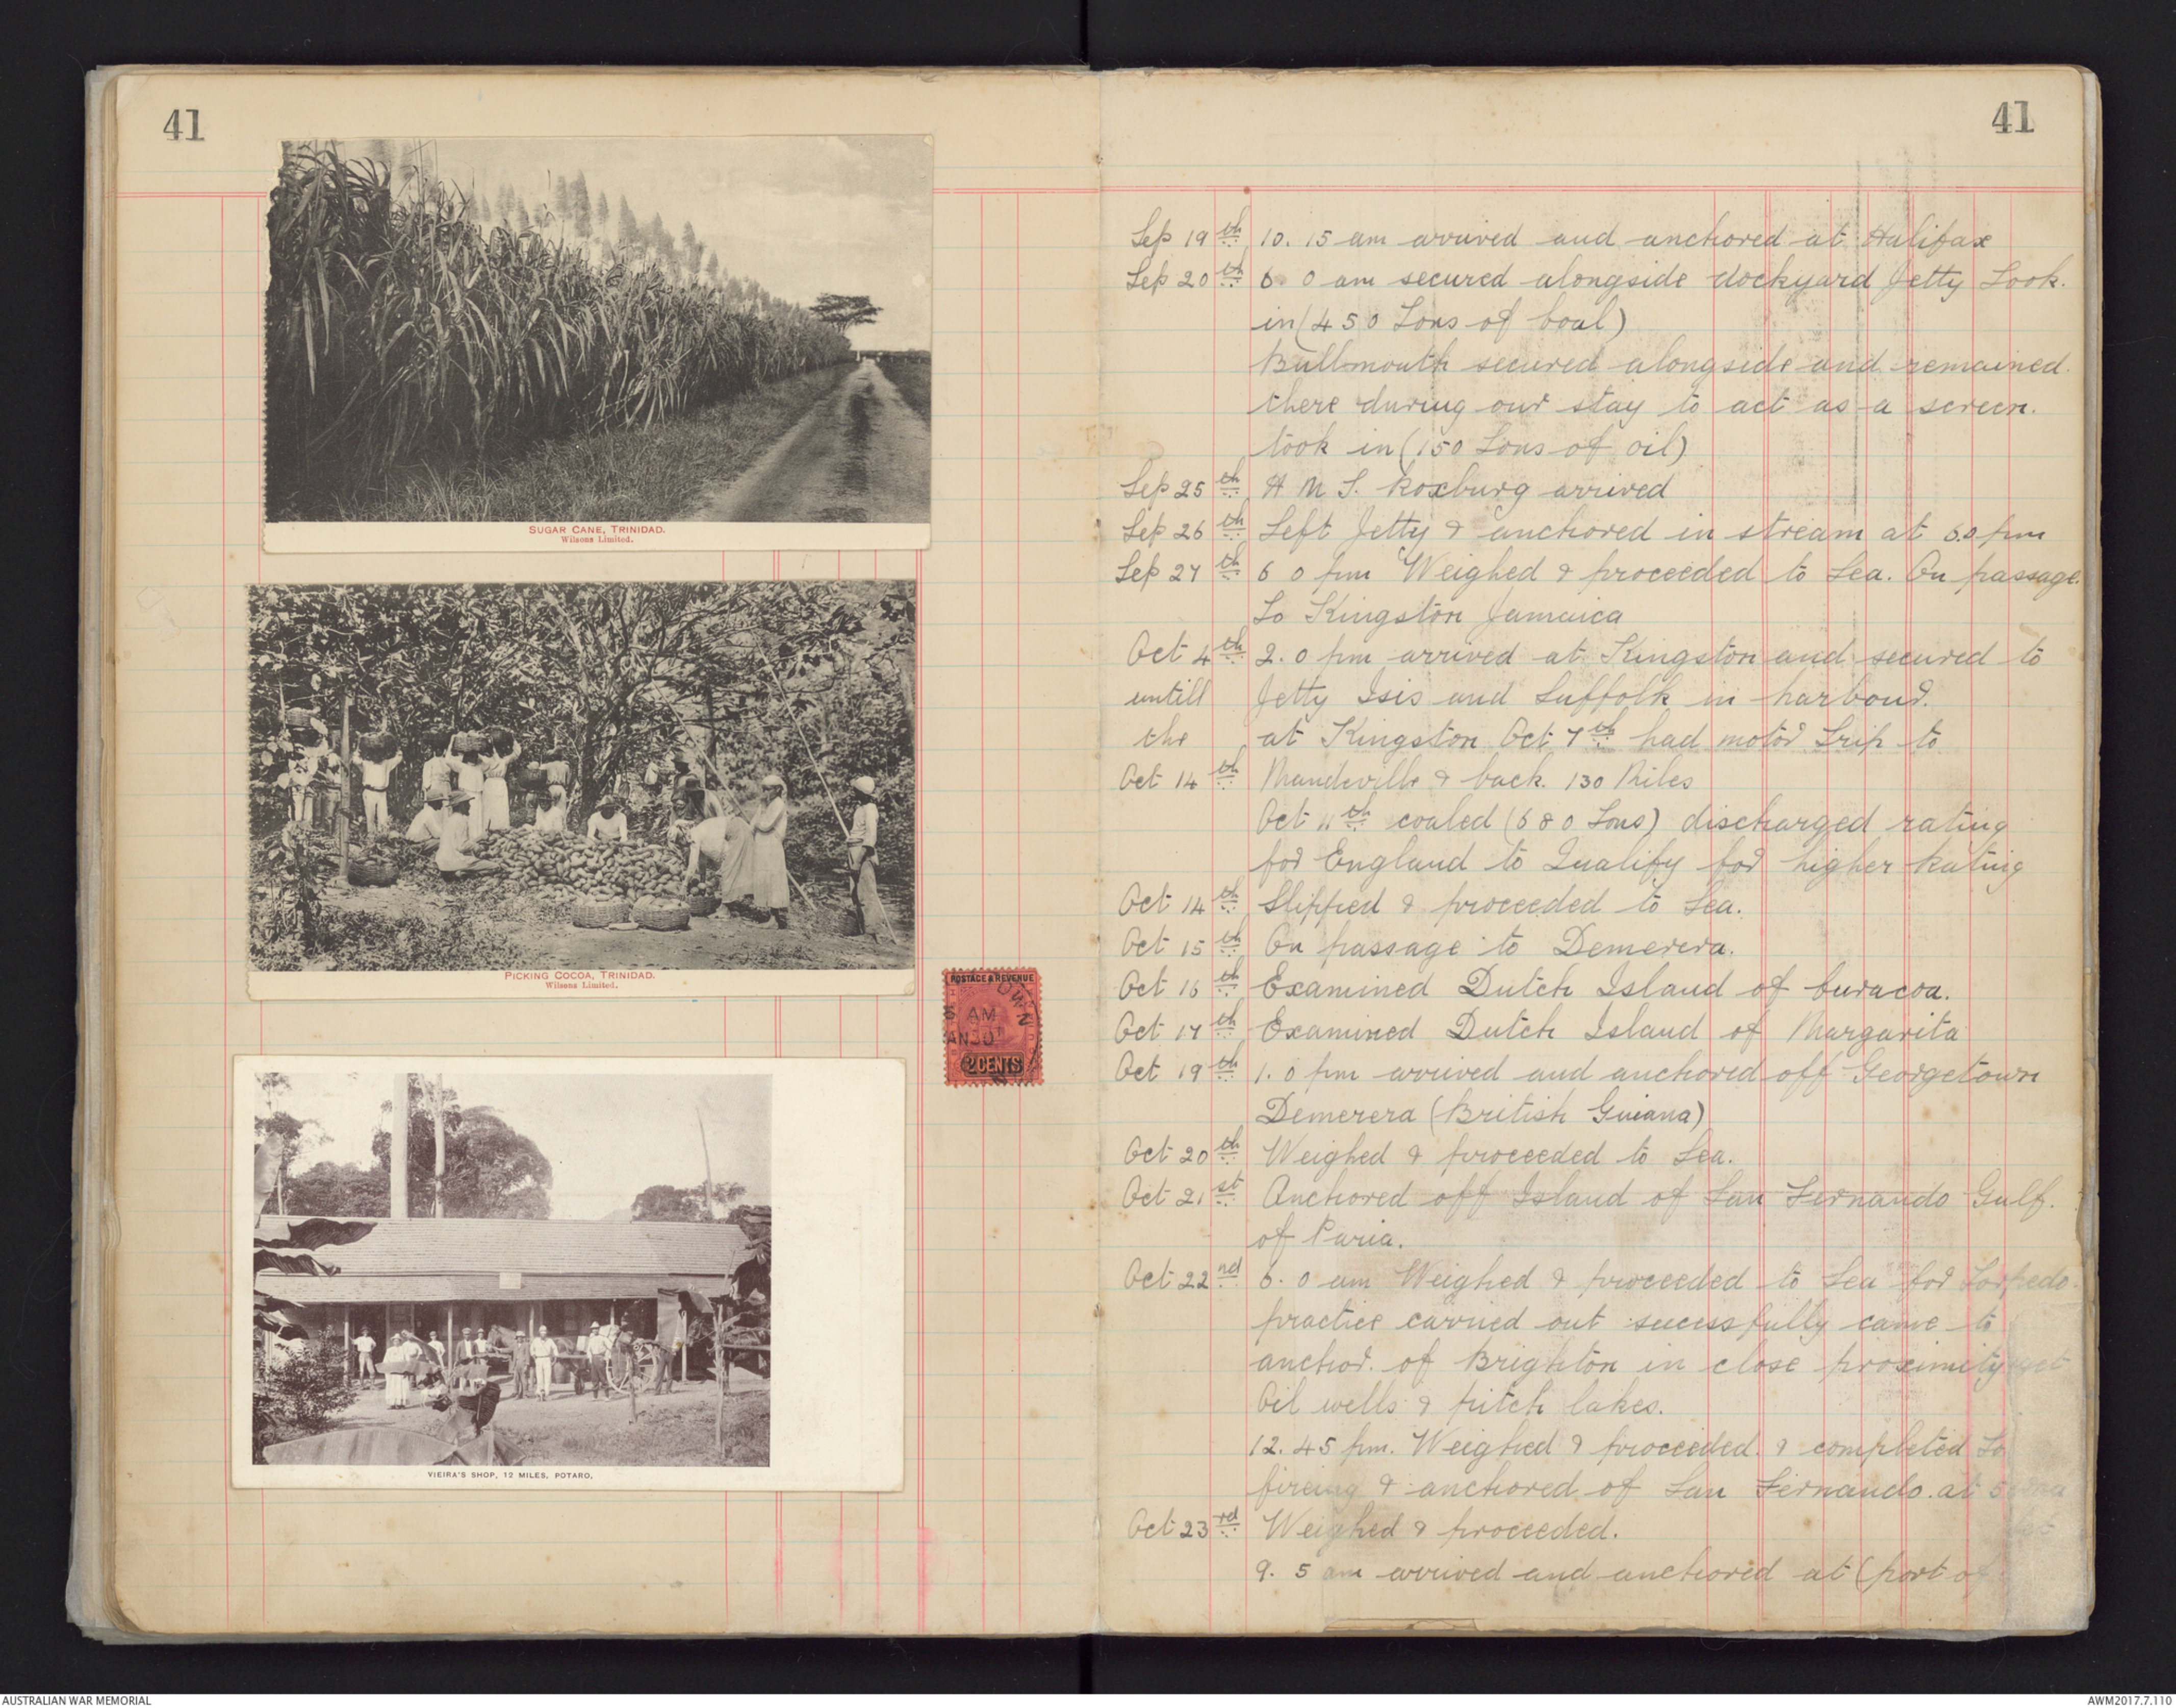 41
SUGAR CANE, TRINIDAD.
Wilsons Limited.
PICKING COCOA, TRINIDAD.
Wilsons Limited.
POSTAGE & REVENUE
AM
2 CENTS
VIEIRA'S SHOP, 12 MILES, POTARO,
41
Sep 19th 10. 15 am arrived and anchored at Halifax
Sep 20th 6 0 am secured alongside dockyard Jetty Took
in (450 Tons of Coal)
Bullmouth secured alongside and remained
there during our stay to act as a screen.
took in (150 Tons of oil)
Sep 25th H M S. Roxburg arrived
Sep 26th Left Jetty & anchored in stream at 6.0 pm
Sep 27th 6 0 pm Weighed & proceeded to Sea. On passage
To Kingston Jamaica
Oct 4th 2. 0 pm arrived at Kingston and secured to
untill Jetty Isis and Suffolk in harbour.
the at Kingston Oct 7th had motor Trip to
Oct 14th Mandeville & back. 130 Miles
Oct 11th coaled (680 Tons) discharged rating
for England to Qualify for higher Rating
Oct 14th Slipped & proceeded to Sea.
Oct 15th On passage to Demerera.
Oct 16th Examined Dutch Island of Curacoa.
Oct 17th Examined Dutch Island of Margarita
Oct 19th 1. 0 pm arrived and anchored off Georgetown
Demerera (British Guiana)
Oct 20th Weighed & proceeded to Sea.
Oct 21st Anchored off Island of San Fernando Gulf.
of Paria.
Oct 22nd 6. 0 am Weighed & proceeded to Sea for Torpedo
practice carried out sucessfully came to
anchor. of Brighton in close proximity
Oil wells & pitch lakes.
12. 45 pm. Weighed & proceeded. & completed To
fireing & anchored of San Fernando. at 5
Oct 23rd Weighed & proceeded.
9. 5 am arrived and anchored at (port of
AUSTRALIAN WAR MEMORIAL
AWM2017.7.110